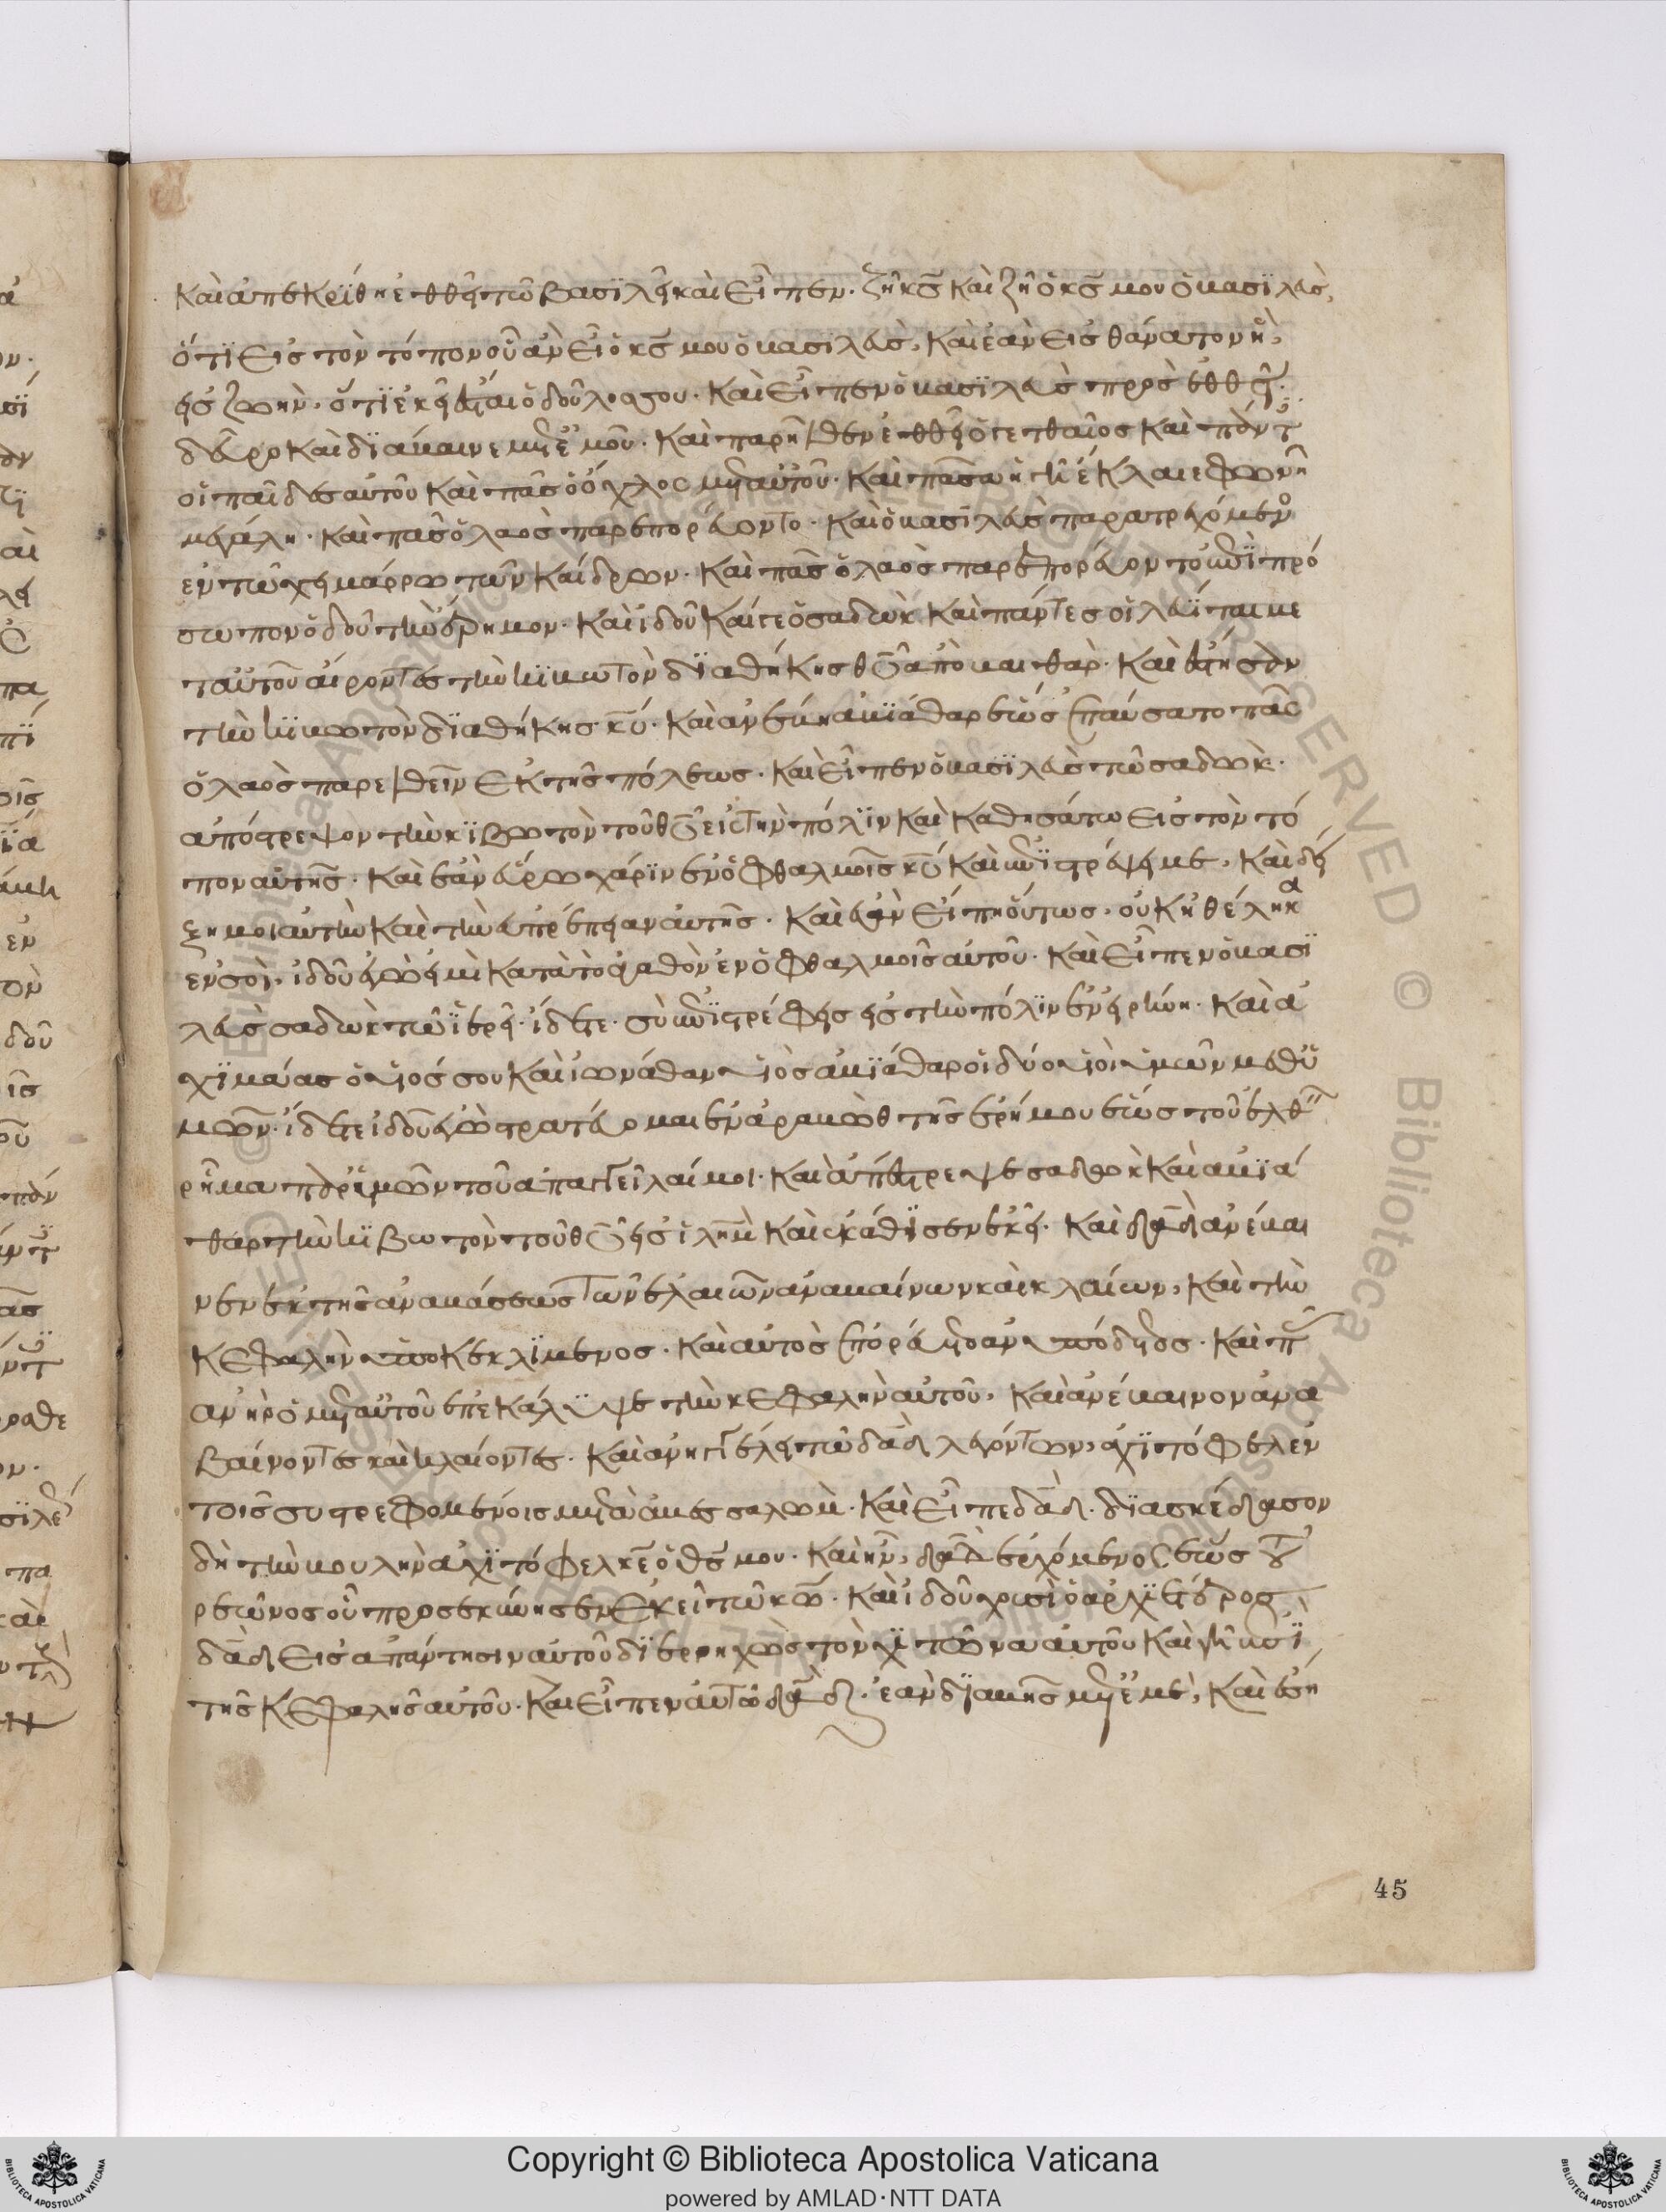 καὶ ἀπεκρίθη ἐθθεῖ τῶ βασϊλεῖ καὶ εἶπεν· ζῆ κς καὶ ζῆ ὁ κς μου ὁ βασϊλεὺς,
ὅτϊ εἰς τὸν τόπον οὗ ἂν εἶ ὁ κς μου ὁ βασιλεὺς, καὶ ἐὰν εἰς θάνατον ἢ,
εἰς ζωὴν, ὅτϊ ἐκεῖ ἔσται ὁ δοῦλος σου· καὶ εἶπεν ὁ βασϊλεὺς πρὸς ἐθθεῖ·
δεῦρο καὶ δϊάβαινε μετ' ἐμοῦ· καὶ παρῆλθεν ἐθθεῖ ὁ γεθθαῖος καὶ πάντ
οἱ παῖδες αὐτοῦ καὶ πᾶς ὁ ὄχλος μετ' αὐτοῦ· καὶ πᾶσα ἡ γῆ ἔκλαιε φωνῆ
μεγάλη· καὶ πᾶς ὁ λαὸς παρεπορεύοντο· καὶ ὁ βασϊλεὺς παρατρεχόμεν
ἐν τῶ χειμάρρω τῶν κέδρων· καὶ πᾶς ὁ λαὸς παρεπορεύοντο ἐπὶ πρό
σωπον ὁδοῦ τὴν ἔρημον· καὶ ἰδοῦ καί γε ὁ σαδὼκ καὶ πάντες οἱ λευΐται με
τ' αὐτοῦ αἴροντες τὴν κϊβωτὸν δϊαθήκης θυ ἀπὸ βαιθάρ· καὶ ἔστησαν
τὴν κϊβωτὸν δϊαθήκης κυ· καὶ ἀνέβη ἀβϊάθαρ ἕως ἐπαύσατο πᾶς
ὁ λαὸς παρελθεῖν ἐκ τῆς πόλεως· καὶ εἶπεν ὁ βασϊλεὺς τῶ σαδὼκ·
ἀπόστρεψον τὴν κϊβωτὸν τοῦ θυ εἰς τὴν πόλϊν καὶ καθησάτω εἰς τὸν τό
πον αὐτῆς· καὶ ἐὰν εὕρω χάρϊν ἐν ὀφθαλμοῖς κυ καὶ ἐπϊστρέψη με, καὶ δεί
ξη μοι αὐτὴν καὶ τὴν εὐπρέπειαν αὐτῆς· καὶ ἐὰν εἴπη οὕτως, οὐκ ἠθέληκα
ἐν σοὶ, ἰδοῦ ἐγὼ εἰμὶ κατὰ τὸ ἀγαθὸν ἐν ὀφθαλμοῖς αὐτοῦ· καὶ εἶπεν ὁ βασϊ
λεὺς σαδὼκ τῶ ϊερεῖ· ἴδετε· σὺ ἐπϊστρέφεις εἰς τὴν πόλϊν ἐν εἰρήνη· καὶ ἀ
χϊμάας ὁ υἱός σου καὶ ἰωνάθαν υἱὸς ἀβϊάθαρ οἱ δύο υἱοὶ ὑμῶν μεθ' ὑ
μῶν· ἴδετε ἰδοῦ ἐγὼ στρατεύομαι ἐν ἀραβὼθ τῆς ἐρήμου ἕως τοῦ ἐλθεῖν
ρῆμα παρ' ὑμῶν τοῦ ἀπαγγεῖλαί μοι· καὶ ἀπέστρεψε σαδὼκ καὶ ἀβϊά
θαρ τὴν κϊβωτὸν τοῦ θυ εἰς ἱλημ καὶ ἐκάθϊσεν ἐκεῖ· καὶ δαδ ἀνέβαι
νεν ἐκ τῆς ἀναβάσεως τῶν ἐλαιῶν ἀναβαίνων καὶ κλαίων, καὶ τὴν
κεφαλὴν ἐπικεκαλϊμένος· καὶ αὐτὸς ἐπορεύετο ἀνυπόδετος· καὶ π
ἀνὴρ ὁ μετ' αὐτοῦ ἐπεκάλϋψε τὴν κεφαλὴν αὐτοῦ, καὶ ἀνέβαινον ἀνα
βαίνοντες καὶ κλαίοντες· καὶ ἀνηγγέλει τῶ δαδ λεγόντων, ἀχϊτόφελ ἐν
τοῖς συστρεφομένοις μετὰ ἀβεσσαλὼμ· καὶ εἶπε δαδ· δϊασκέδασον
δὴ τὴν βουλὴν ἀχϊτόφελ κε ὁ θς μου· καὶ ἦν, δαδ ἐρχόμενος ἕως τοῦ
ρεῶνος οὗ προσεκύνησεν ἐκεῖ τῶ κω· καὶ ἰδοῦ χουσὶ ὁ ἀρχϊέταιρος
δαδ εἰς ἀπάντησιν αὐτοῦ δϊερρηχὼς τὸν χϊτῶνα αὐτοῦ καὶ γῆ ἐπὶ
τῆς κεφαλῆς αὐτοῦ· καὶ εἶπεν αὐτῶ δαδ· ἐὰν δϊαβῆς μετ' ἐμὲ, καὶ ἔση
45
Copyright © Biblioteca Apostolica Vaticana
powered by AMLAD·NTT DATA